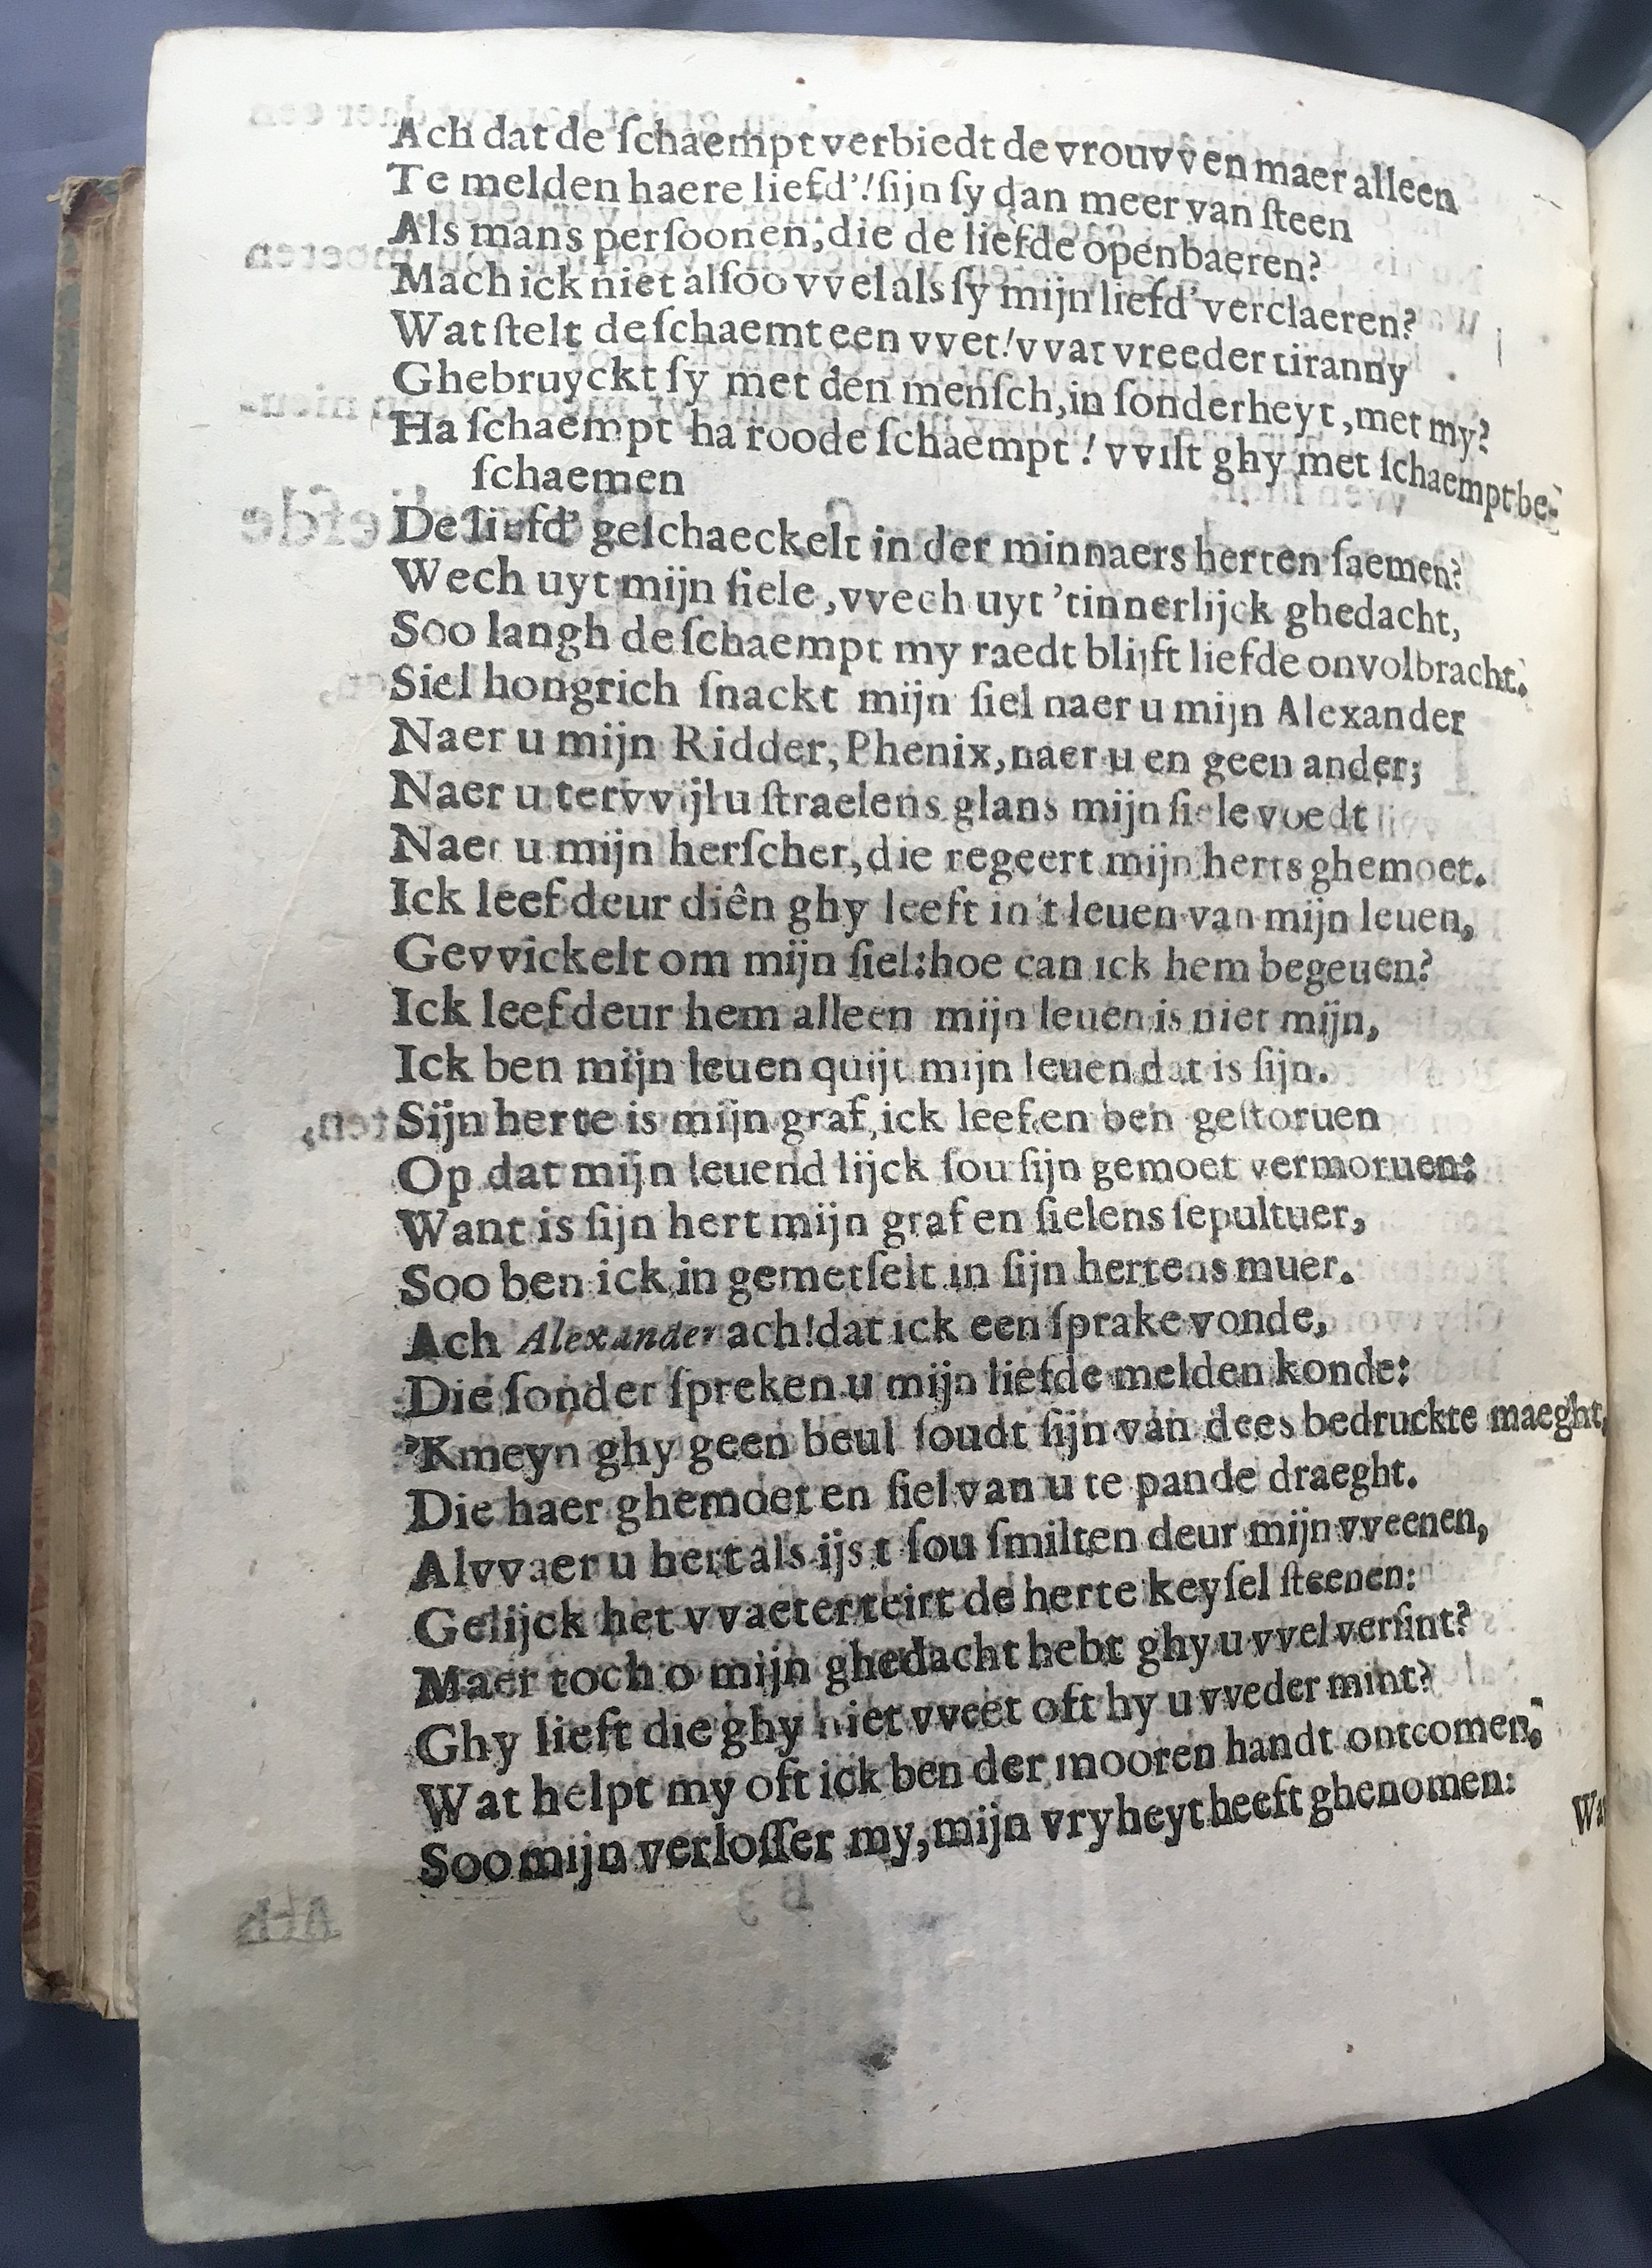 Ach dat de ſchaempt verbiedt de vrouvven maer alleen
Te melden haere liefd'! ſijn ſy dan meer van ſteen
Als mans perſoonen, die de liefde openbaeren?
Mach ick niet alſoo vvel als ſy mijn liefd' verclaeren?
Wat ſtelt de ſchaemt een vvet! vvat vreeder tiranny
Ghebruyckt ſy met den menſch, in ſonderheyt, met my?
Ha ſchaempt ha roode ſchaempt! vvilt ghy met ſchaempt be-
ſchaemen
De liefd' geſchaeckelt in der minnaers herten ſaemen?
Wech uyt mijn ſiele, vvech uyt 'tinnerlijck ghedacht,
Soo langh de ſchaempt my raedt blijft liefde onvolbracht.
Siel hongrich ſnackt mijn ſiel naer u mijn Alexander
Naer u mijn Ridder, Phenix, naer u en geen ander;
Naer u tervvijl u ſtraelens glans mijn ſiele voedt
Naer u mijn herſcher, die regeert mijn herts ghemoet.
Ick leef deur diên ghy leeft in 't leuen van mijn leuen,
Gevvickelt om mijn ſiel: hoe can ick hem begeuen?
Ick leef deur hem alleen mijn leuen is niet mijn,
Ick ben mijn leuen quijt mijn leuen dat is ſijn.
Sijn herte is mijn graf, ick leef en ben geſtoruen
Op dat mijn leuend lijck ſou ſijn gemoet vermoruen:
Want is ſijn hert mijn graf en ſielens ſepultuer,
Soo ben ick in gemetſelt in ſijn hertens muer.
Ach Alexander ach! dat ick een ſprake vonde,
Die ſonder ſpreken u mijn liefde melden konde:
'Kmeyn ghy geen beul ſoudt ſijn van dees bedruckte maeght,
Die haer ghemoet en ſiel van u te pande draeght.
Alvvaer u hert als ijs t ſou ſmilten deur mijn vveenen,
Gelijck het vvaeter teirt de herte keyſel ſteenen:
Maer toch o mijn ghedacht hebt ghy u vvel verſint?
Ghy lieft die ghy niet vveet oft hy u vveder mint?
Wat helpt my oft ick ben der mooren handt ontcomen,
Soo mijn verloſſer my, mijn vryheyt heeft ghenomen: